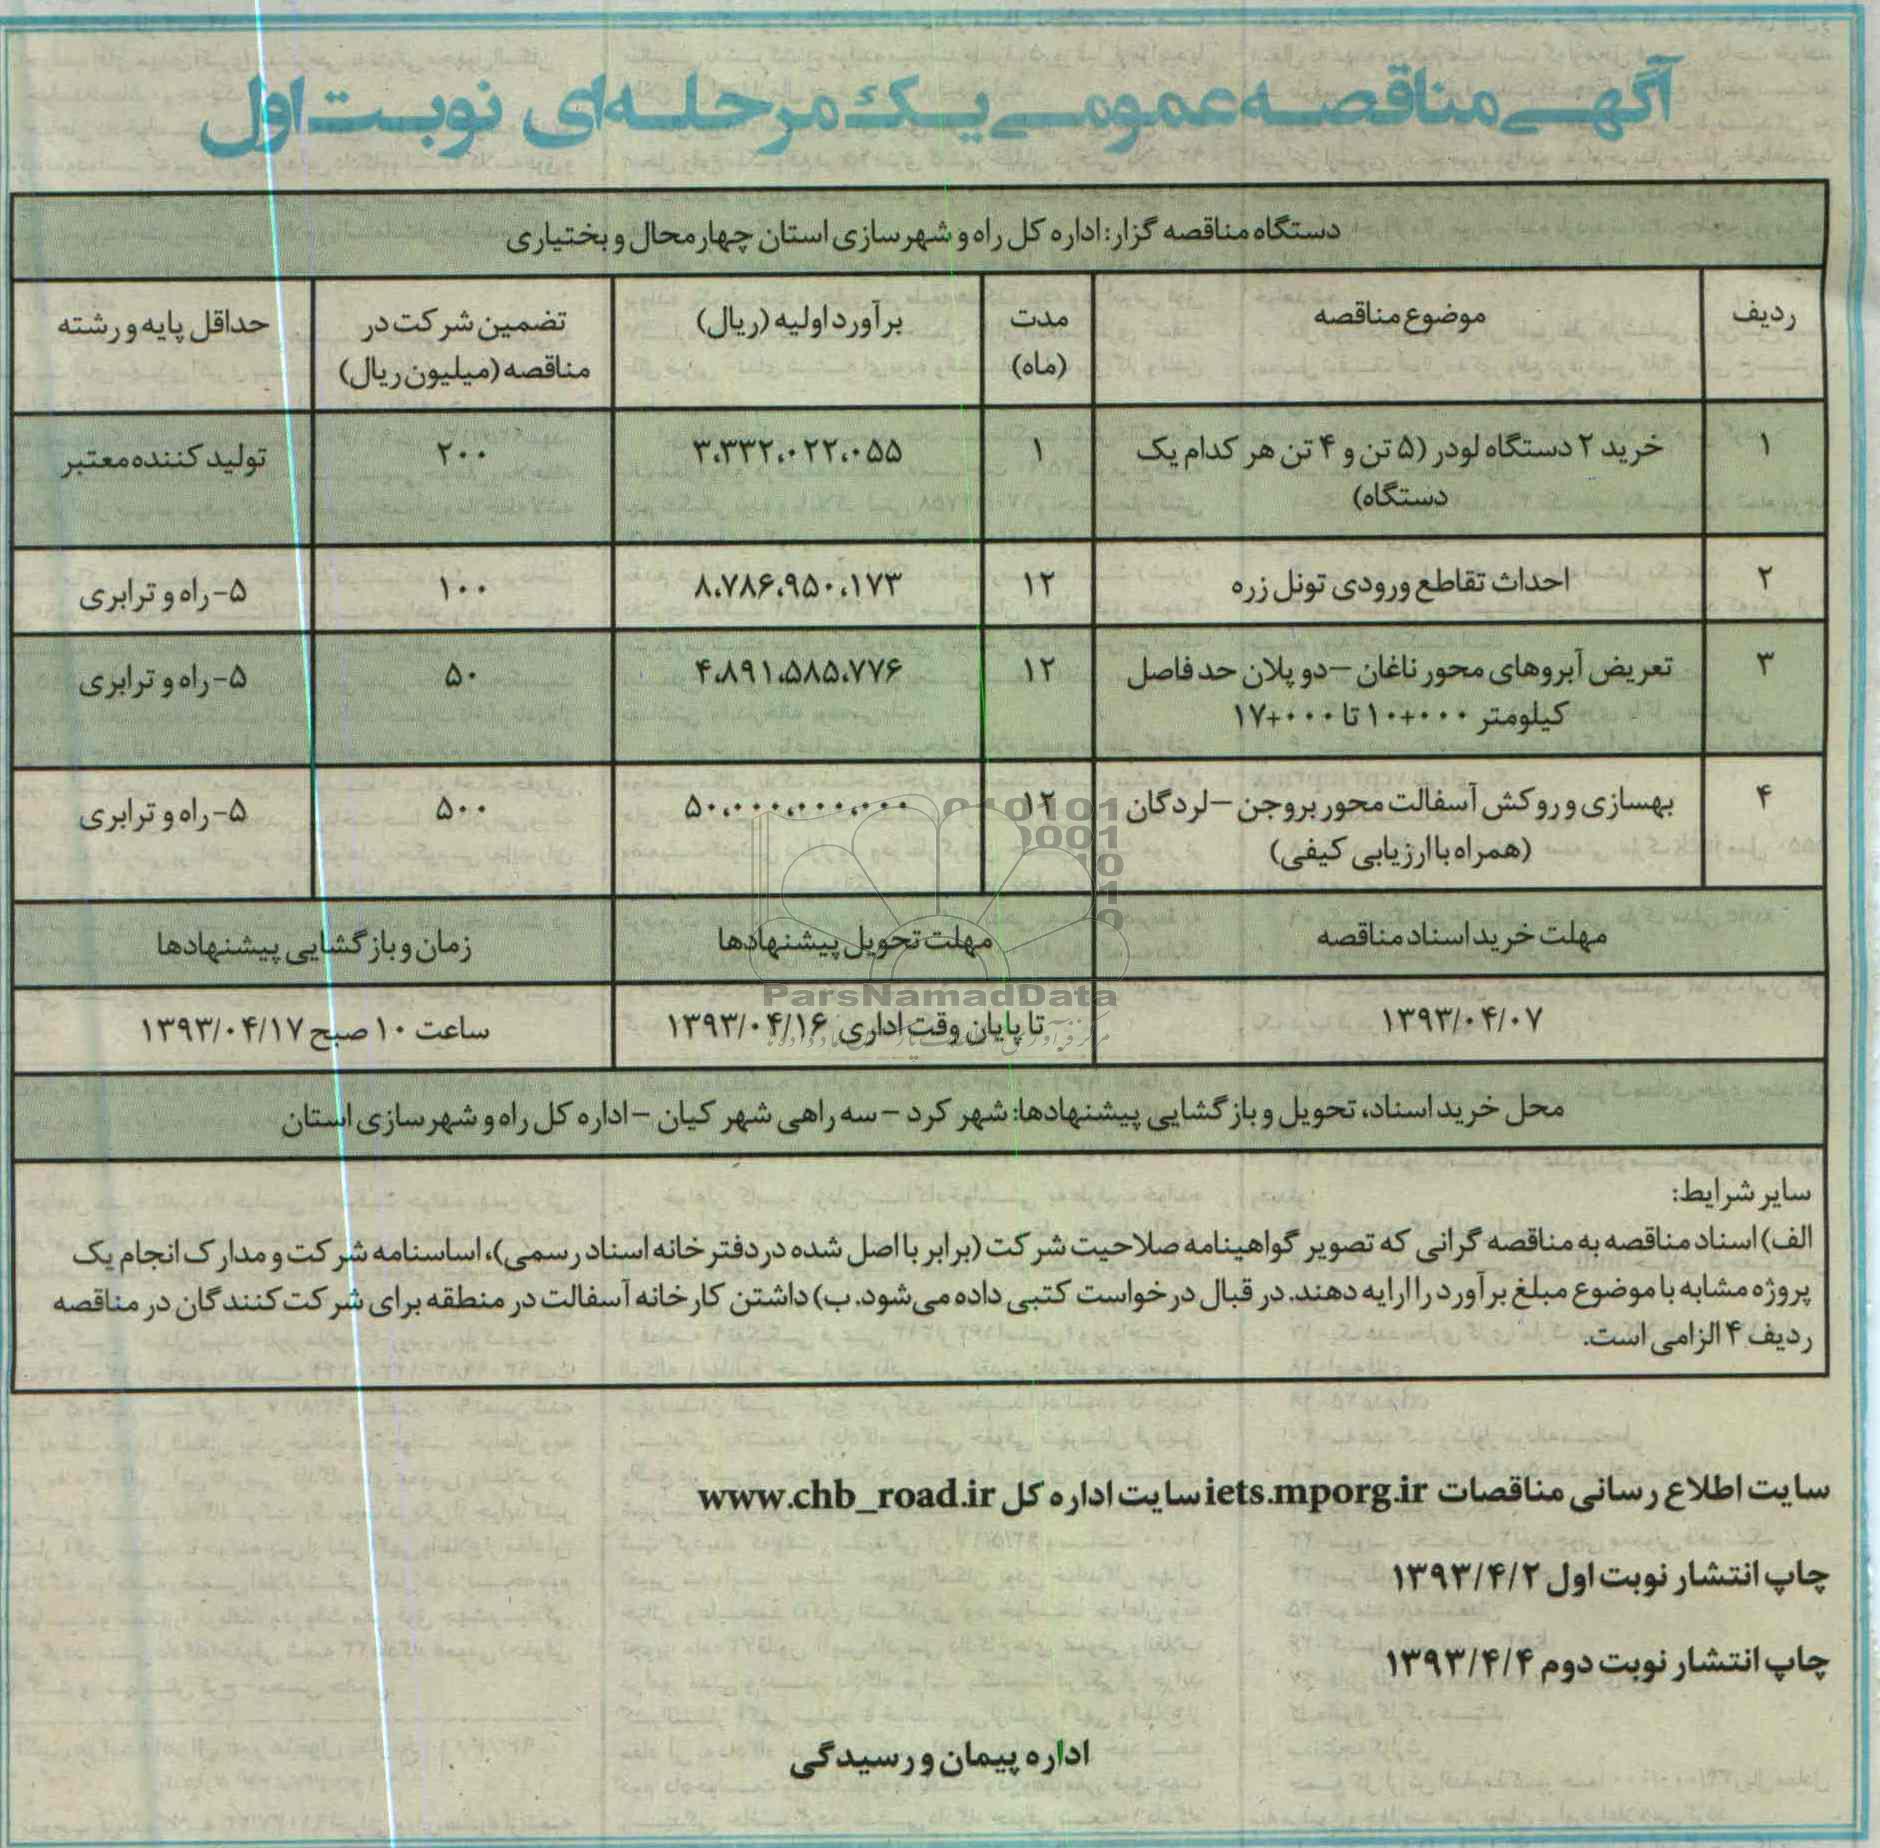 آگهی مناقصه عمومی یک مرحله‌ای نوبت اول
دستگاه مناقصه گزار: اداره کل راه و شهرسازی استان چهارمحال و بختیاری
ردیف
موضوع مناقصه
مدت
(ماه)
برآورد اولیه (ریال)
تضمین شرکت در
مناقصه (میلیون ریال)
حداقل پایه و رشته
۱
خرید ۲ دستگاه لودر (۵ تن و ۴ تن هر کدام یک
دستگاه)
۱
۳،۳۳۲،۰۲۲،۰۵۵
۲۰۰
تولید کننده معتبر
۲
احداث تقاطع ورودی تونل زره
۱۲
۸،۷۸۶،۹۵۰،۱۷۳
۱۰۰
۵- راه و ترابری
۳
تعریض آبروهای محور ناغان – دو پلان حد فاصل
کیلومتر ۰۰۰+۱۰ تا ۰۰۰+۱۷
۱۲
۴،۸۹۱،۵۸۵،۷۷۶
۵۰
۵- راه و ترابری
۴
بهسازی و روکش آسفالت محور بروجن – لردگان
(همراه با ارزیابی کیفی)
۱۲
۵۰،۰۰۰،۰۰۰،۰۰۰
۵۰۰
۵- راه و ترابری
مهلت خرید اسناد مناقصه
مهلت تحویل پیشنهادها
زمان و بازگشایی پیشنهادها
ParsNamadData
۱۳۹۳/۰۴/۰۷
تا پایان وقت اداری ۱۳۹۳/۰۴/۱۶
ساعت ۱۰ صبح ۱۳۹۳/۰۴/۱۷
محل خرید اسناد، تحویل و بازگشایی پیشنهادها: شهر کرد – سه راهی شهر کیان – اداره کل راه و شهرسازی استان
سایر شرایط:
الف) اسناد مناقصه به مناقصه گرانی که تصویر گواهینامه صلاحیت شرکت (برابر با اصل شده در دفترخانه اسناد رسمی)، اساسنامه شرکت و مدارک انجام یک
پروژه مشابه با موضوع مبلغ برآورد را ارایه دهند. در قبال درخواست کتبی داده می‌شود. ب) داشتن کارخانه آسفالت در منطقه برای شرکت کنندگان در مناقصه
ردیف ۴ الزامی است.
سایت اطلاع رسانی مناقصات iets.mporg.ir سایت اداره کل www.chb_road.ir
چاپ انتشار نوبت اول ۱۳۹۳/۴/۲
چاپ انتشار نوبت دوم ۱۳۹۳/۴/۴
اداره پیمان و رسیدگی